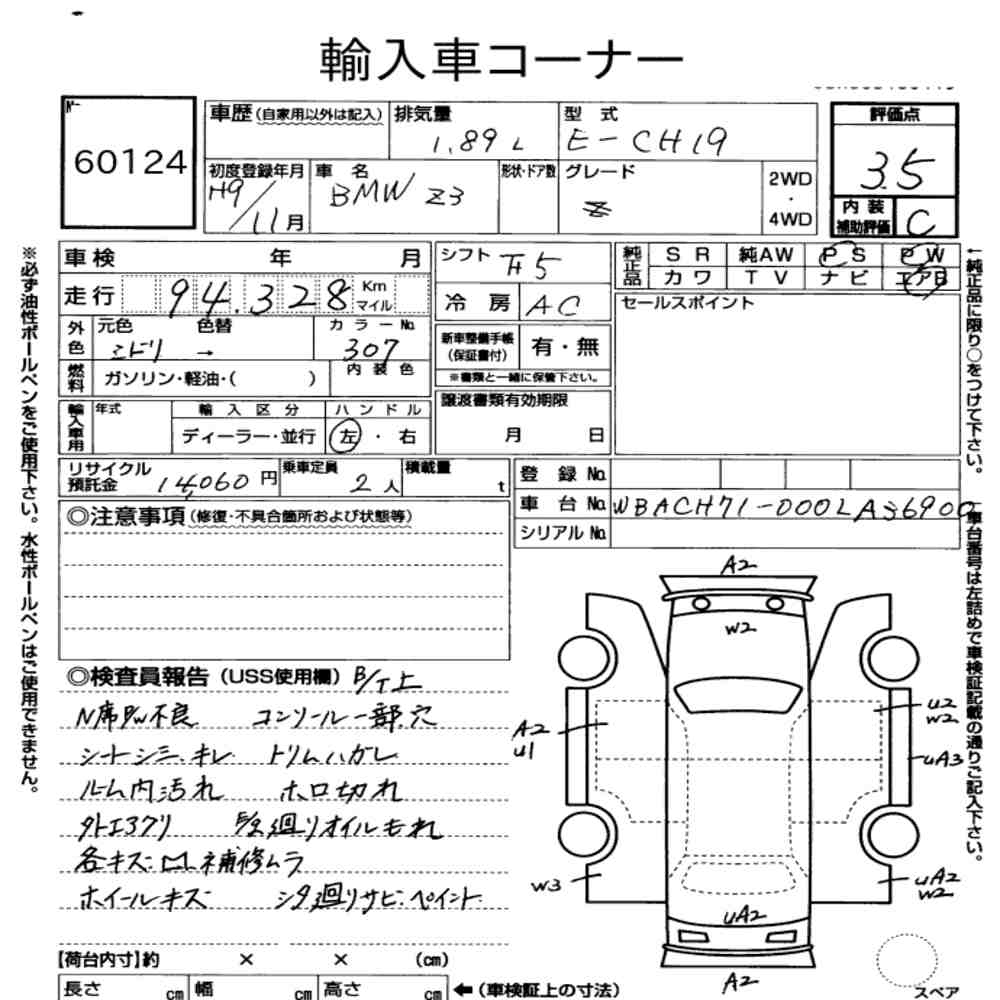 輸入車コーナー
№
60124
車歴(自家用以外は記入)
排気量
1.89 L
型式
E-CH19
評価点
3.5
初度登録年月
H9/11月
車名
BMW Z3
形状・ドア数
グレード
2WD
・
4WD
内装
補助評価
C
車検 年 月
シフト
純正品
SR 純AW PS PW
カワ TV ナビ エアB
走行 94,328 Km
マイル
冷房 AC
セールスポイント
外色
元色 色替
ミドリ →
カラーNo.
307
新車整備手帳
(保証書付)
有・無
※書類と一緒に保管下さい。
燃料
ガソリン・軽油・( )
内装色
譲渡書類有効期限
月 日
輸入車用
年式
輸入区分
ディーラー・並行
ハンドル
左・右
リサイクル
預託金
14,060円
乗車定員
2人
積載量
t
登録No.
車台No. WBACH71-000LA36900
シリアルNo.
◎注意事項(修復・不具合箇所および状態等)
◎検査員報告(USS使用欄) B/T上
N席PW不良 コンソール一部穴
シートシミ、キレ トリムハガレ
ルーム内汚れ ホロ切れ
廻りオイルもれ
各キズ 凹 補修ムラ
ホイールキズ シタ廻りサビ、ペイント
A2
W2
A2
U1
U2
W2
UA3
W3
UA2
W2
UA2
A2
スペア
【荷台内寸】約 × × (cm)
長さ cm 幅 cm 高さ cm ←(車検証上の寸法)
※必ず油性ボールペンをご使用下さい。水性ボールペンはご使用できません。
←純正品に限り○をつけて下さい。
車台番号は左詰めで車検証記載の通りご記入下さい。